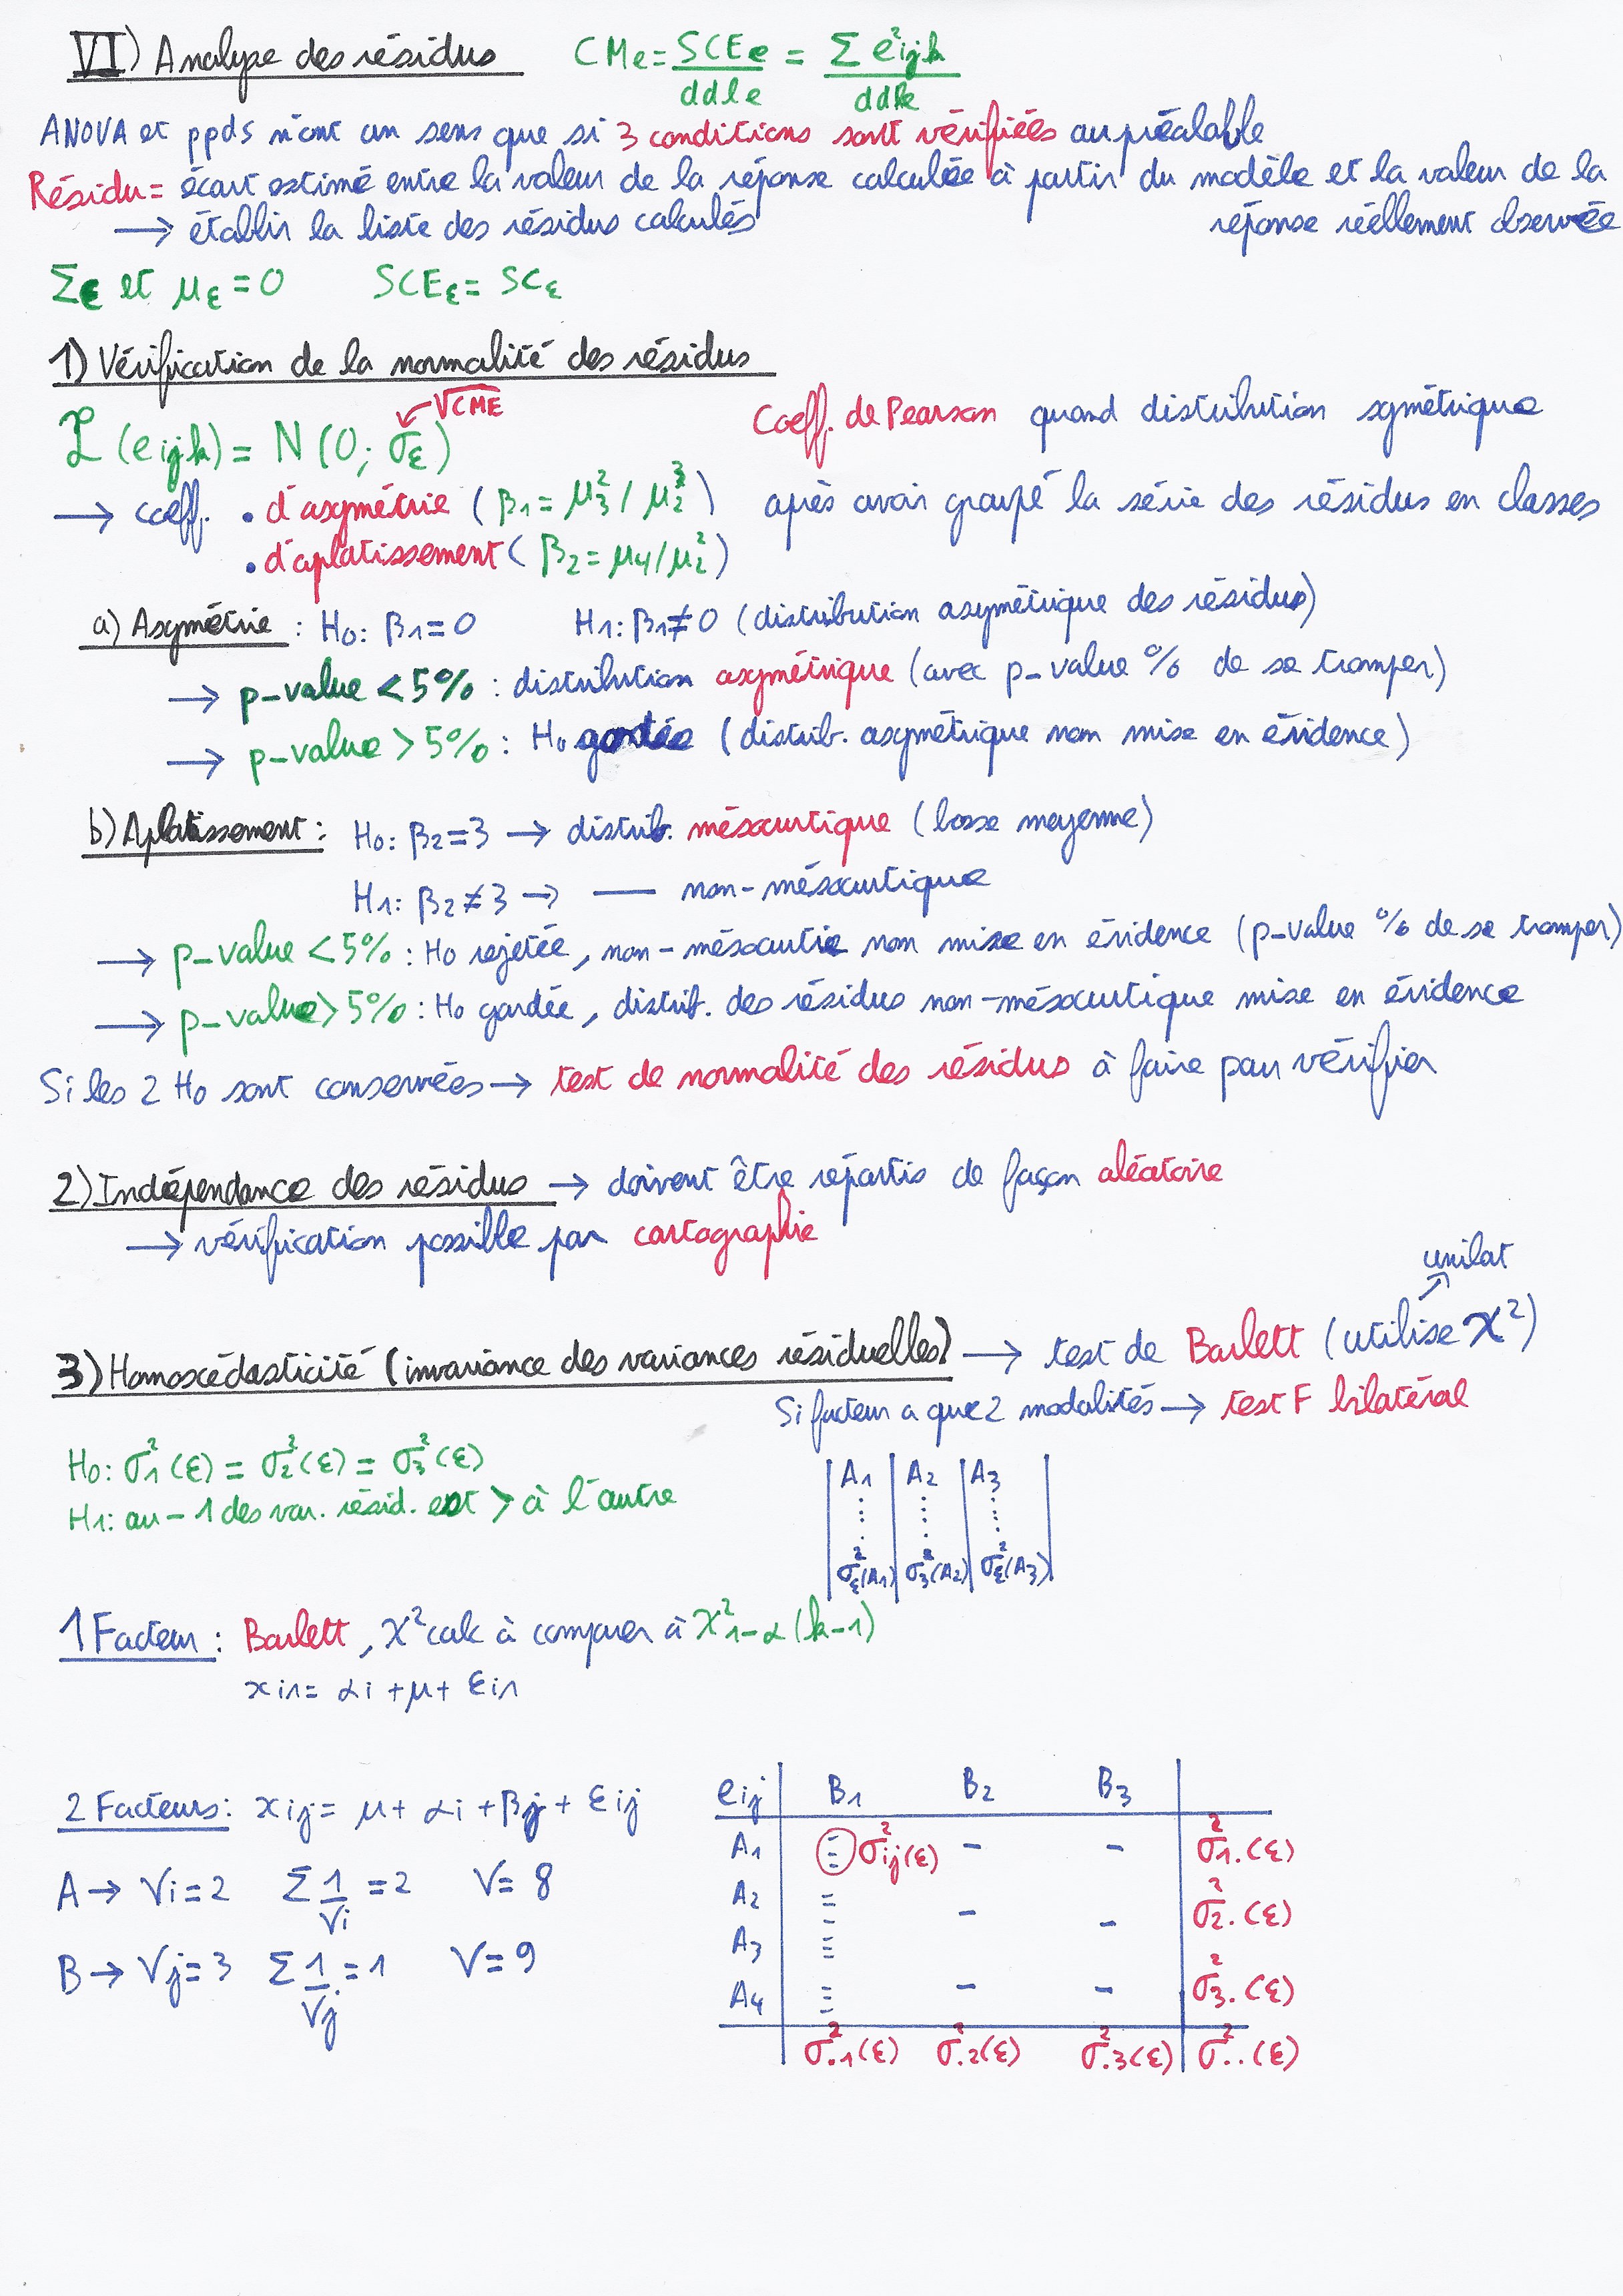 VI) Analyse des résidus CMe = SCEe / ddle = Σ e²ijk / ddle
ANOVA et ppds n'ont un sens que si 3 conditions sont vérifiées au préalable
Résidu = écart estimé entre la valeur de la réponse calculée à partir du modèle et la valeur de la
réponse réellement observée
→ établir la liste des résidus calculés
Σε et με = 0 SCEε = SCε
1) Vérification de la normalité des résidus
√CME
L (eijk) = N (0; σε)
Coeff. de Pearson quand distribution symétrique
→ coeff. • d'asymétrie (β1 = μ3² / μ2³) après avoir groupé la série des résidus en classes
• d'aplatissement (β2 = μ4/μ2²)
a) Asymétrie : H0: β1 = 0 H1: β1 ≠ 0 (distribution asymétrique des résidus)
→ p-value < 5% : distribution asymétrique (avec p-value % de se tromper)
→ p-value > 5% : H0 gardée (distrib. asymétrique non mise en évidence)
b) Aplatissement : H0: β2 = 3 → distrib. mésocurtique (bosse moyenne)
H1: β2 ≠ 3 → — non-mésocurtique
→ p-value < 5% : H0 rejetée, non-mésocurtie non mise en évidence (p-value % de se tromper)
→ p-value > 5% : H0 gardée, distrib. des résidus non-mésocurtique mise en évidence
Si les 2 H0 sont conservées → test de normalité des résidus à faire pour vérifier
2) Indépendance des résidus → doivent être répartis de façon aléatoire
→ vérification possible par cartographie
unilat
3) Homoscédasticité (invariance des variances résiduelles) → test de Barlett (utilise χ²)
Si facteur a que 2 modalités → test F bilatéral
H0: σ1²(ε) = σ2²(ε) = σ3²(ε)
H1: au - 1 des var. résid. est > à l'autre
A1 A2 A3
σε²(A1) σ3²(A2) σε²(A3)
1 Facteur : Barlett, χ² calc à comparer à χ²1-α (k-1)
xi1 = αi + μ + εi1
2 Facteurs : xij = μ + αi + βj + εij
A → νi = 2 Σ 1/νi = 2 ν = 8
B → νj = 3 Σ 1/νj = 1 ν = 9
eij B1 B2 B3
A1 σij²(ε) - - σ1.²(ε)
A2 - - σ2.²(ε)
A3
A4 - - σ3.²(ε)
σ.1²(ε) σ.2²(ε) σ.3²(ε) σ..²(ε)